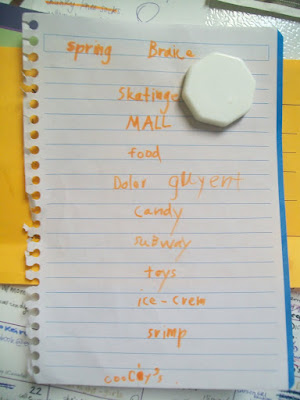 spring Brake
skating
MALL
food
Dolar guyent
candy
subway
toys
ice-crem
srimp